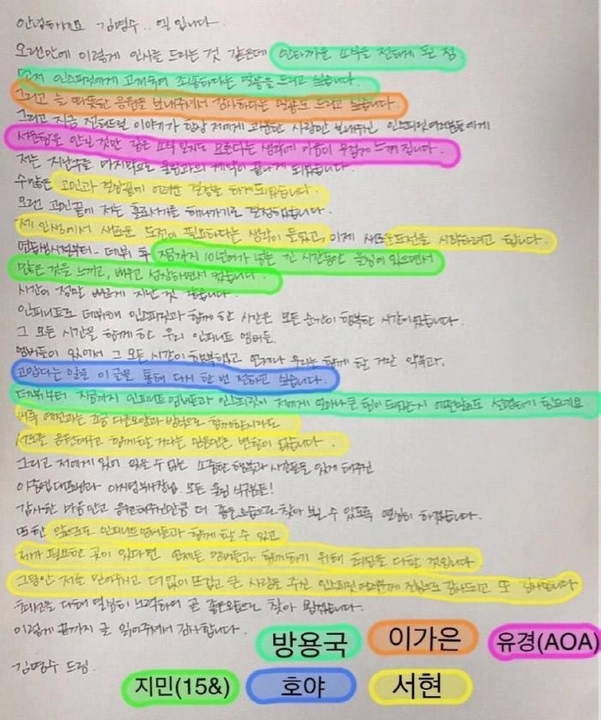 안녕하세요 김명수.. 엘 입니다
오랜만에 이렇게 인사를 드리는 것 같은데 안타까운 소식을 전하게 된 점
먼저 인스피릿에게 고개숙여 죄송하다는 말씀을 드리고 싶습니다.
그리고 늘 따뜻한 응원을 보내주셔서 감사하다는 말씀도 드리고 싶습니다.
그리고 지금 전해드릴 이야기가 항상 저에게 과분한 사랑만 보내주신 인스피릿 여러분들에게
서운함을 안길 것만 같은 소식 일지도 모른다는 생각에 마음이 무겁게 느껴집니다.
저는 지난주를 마지막으로 울림과의 계약이 끝나게 되었습니다.
수많은 고민과 걱정끝에 어려운 결정을 하게되었습니다.
오랜 고민끝에 저는 홀로서기를 해나가기로 결정하였습니다.
제 인생에서 새로운 도전이 필요하다는 생각이 들었고, 이제 새로운도전을 시작하려고 합니다.
연습생시절부터- 데뷔 후 지금까지 10년여가 넘는 긴 시간동안 울림에 있으면서
많은 것을 느끼고, 배우고 성장하면서 컸습니다.
시간이 정말 빠르게 지난 것 같습니다.
인피니트로 데뷔해 인스피릿과 함께 한 시간은 모든 순간이 행복한 시간이었습니다.
그 모든 시간을 함께 한 우리 인피니트 멤버들.
멤버들이 있어서 그 모든 시간이 행복했고 언제나 우리는 함께 할 거란 약속과,
고맙다는 말을 이 글을 통해 다시 한 번 전하고 싶습니다.
데뷔부터 지금까지 인피니트 멤버들과 인스피릿이 저에게 얼마나 큰 힘이 되었는지 어떤말로도 설명하기 힘든데요
비록 예전과는 조금 다른모양과 방법으로 함께하더라도
서로를 응원해주고 함께할 거라는 믿음만은 변함이 없습니다.
그리고 저에게 있어 잊을 수 없는 소중한 행복과 시간들을 있게 해주신
이중엽대표님과 이사님, 부사장님 모든 울림 식구분들!
감사한 마음안고 응원해주신만큼 더 좋은모습으로 찾아 뵐 수 있도록 열심히 하겠습니다.
또한 앞으로도 인피니트멤버들과 함께 할 수 있고
제가 필요한 곳이 있다면 언제든 멤버들과 함께하기 위해 최선을 다할 것입니다
그동안 저를 믿어주시고 더없이 뜨겁고 큰 사랑을 주신 인스피릿 여러분께 진심으로 감사드리고 또 감사합니다
최선을 다해 열심히 노력하여 곧 좋은모습으로 찾아 뵙겠습니다.
이렇게 끝까지 글 읽어주셔서 감사합니다.
김명수 드림
방용국 이가은 유경(AOA)
지민(15&) 호야 서현